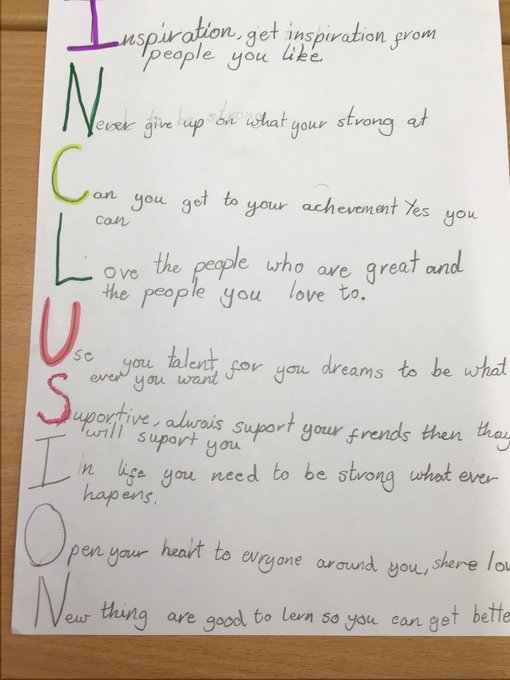 Inspiration, get inspiration from
people you like
Never give up on what your strong at
Can you get to your achevement Yes you
can
Love the people who are great and
the people you love to.
Use you talent for you dreams to be what
ever you want
Suportive, alwais suport your frends then thay
will suport you
In life you need to be strong what ever
hapens.
Open your heart to evryone around you, shere lov
New thing are good to lern so you can get bette